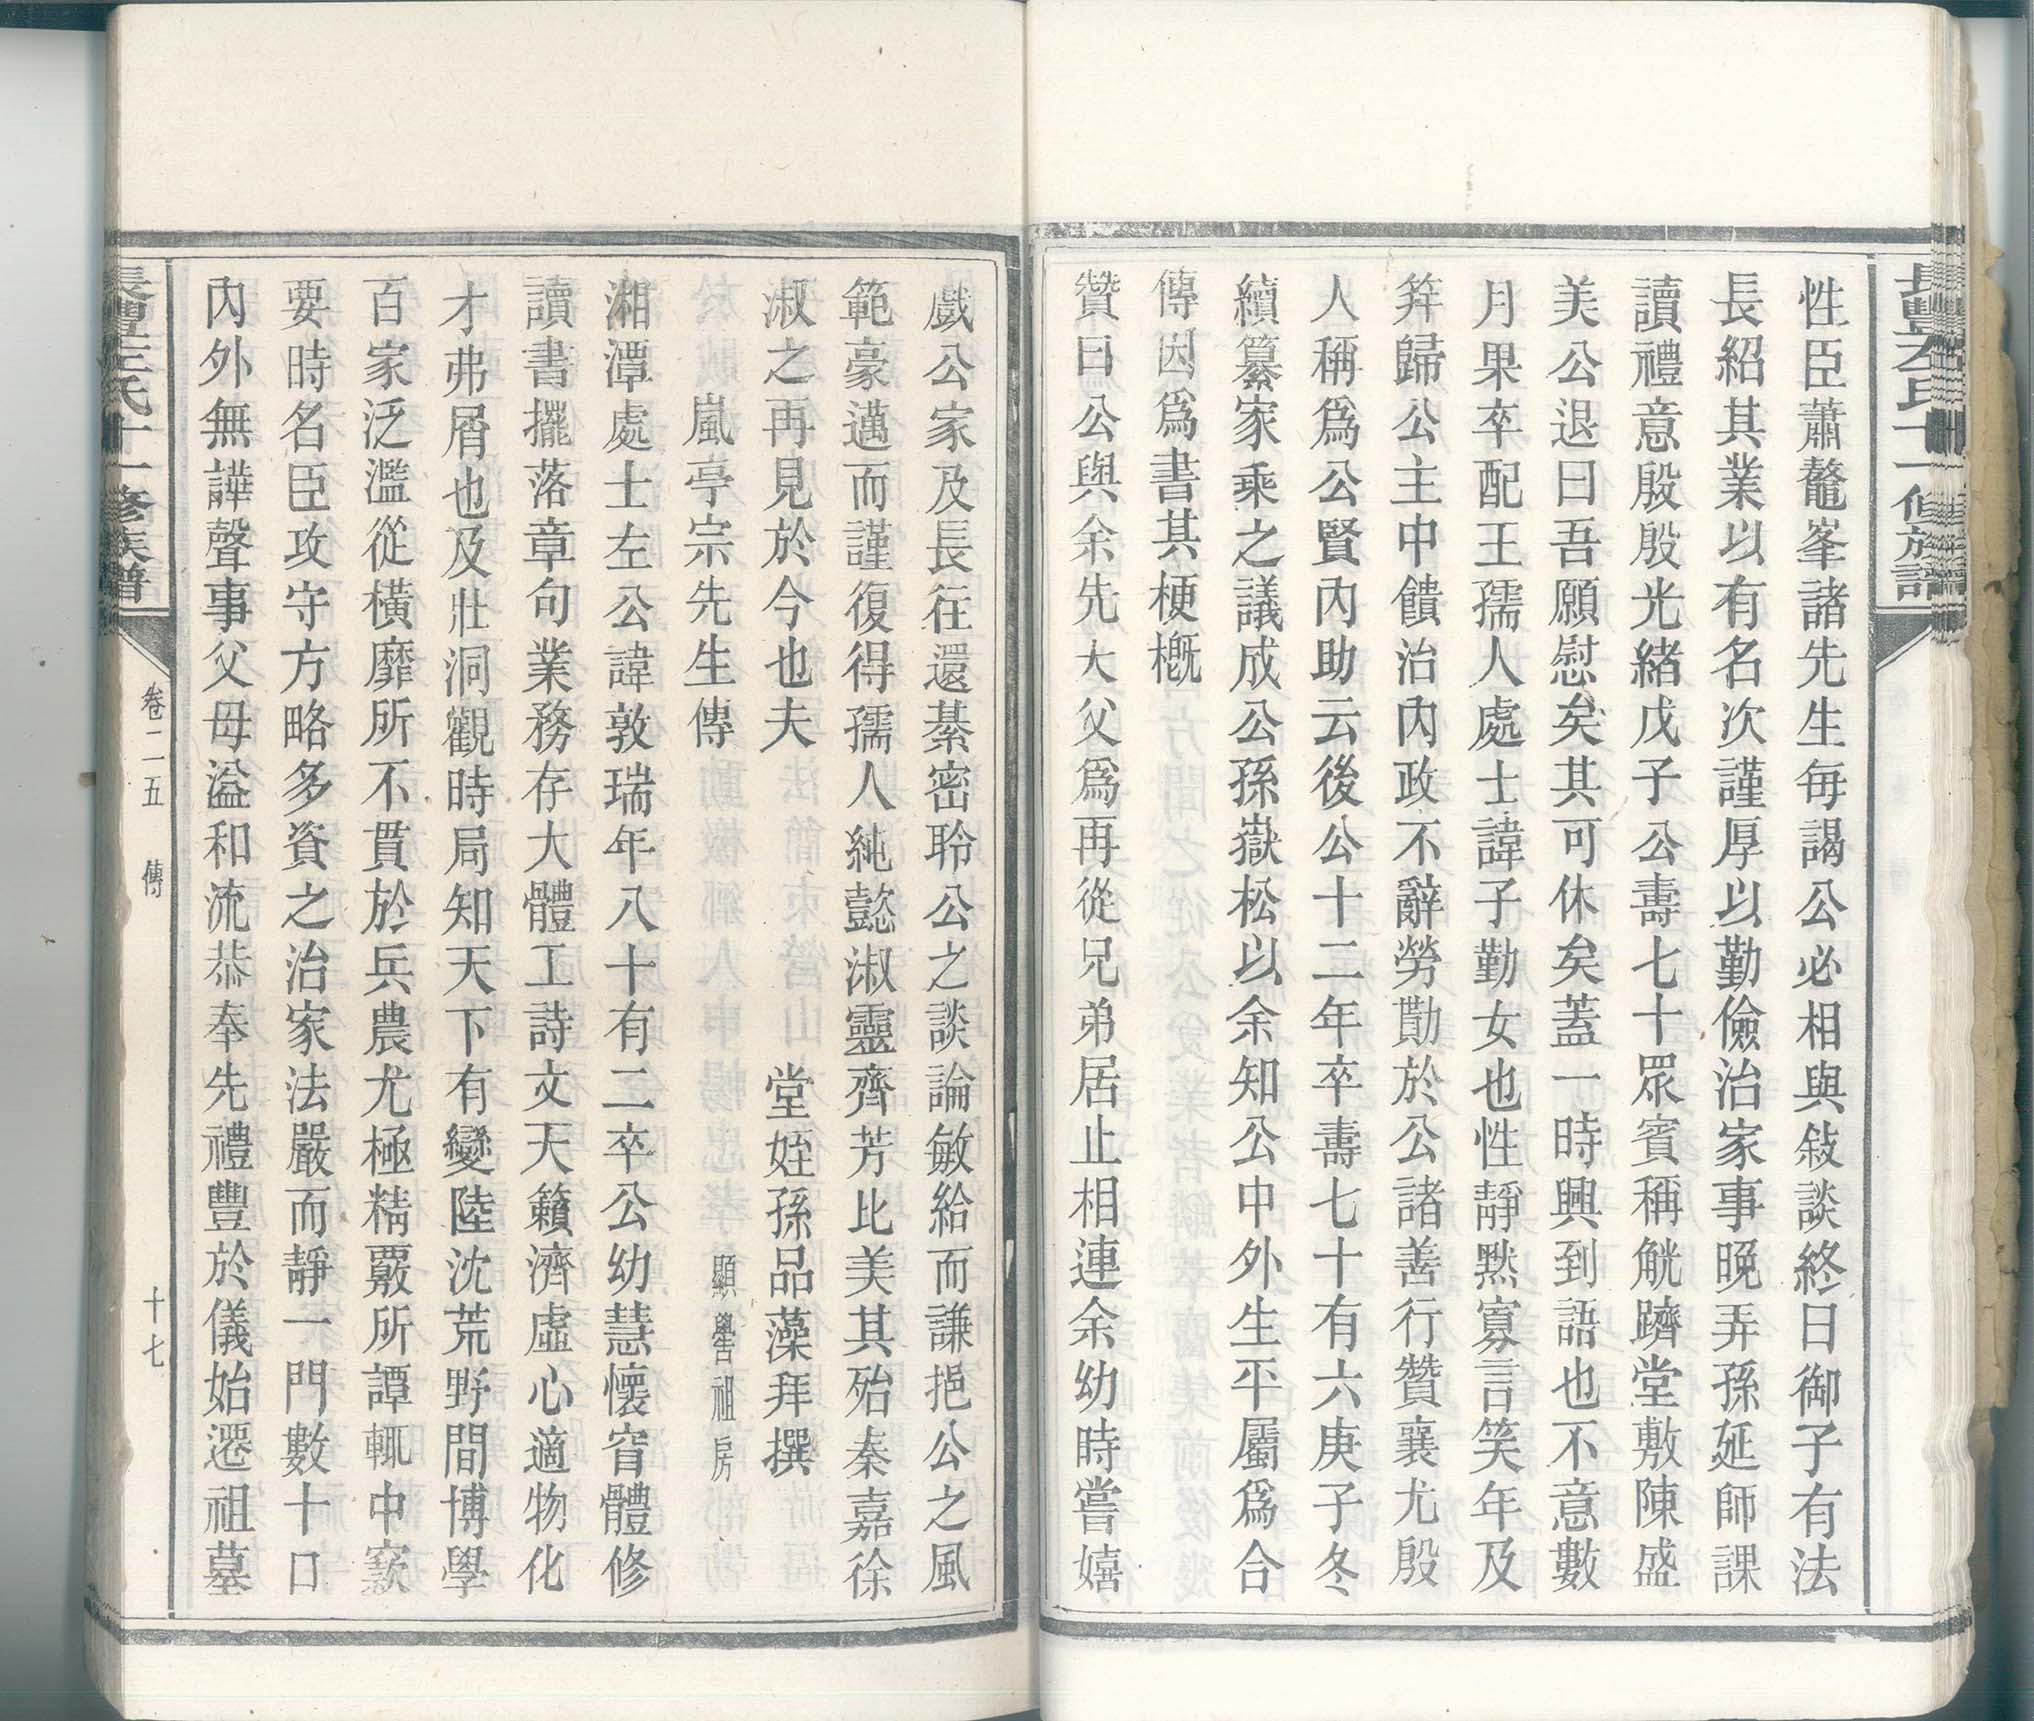 長豐左氏十一修族譜
性臣蕭鼇峯諸先生每謁公必相與敍談終日御子有法
長紹其業以有名次謹厚以勤儉治家事晚弄孫延師課
讀禮意殷殷光緒戊子公壽七十眾賓稱觥躋堂敷陳盛
美公退曰吾願慰矣其可休矣蓋一時興到語也不意數
月果卒配王孺人處士諱子勤女也性靜黙寡言笑年及
筓歸公主中饋治內政不辭勞勩於公諸善行贊襄尤殷
人稱爲公賢內助云後公十二年卒壽七十有六庚子冬
續纂家乘之議成公孫嶽松以余知公中外生平屬爲合
傳因爲書其梗槪
贊曰公與余先大父爲再從兄弟居止相連余幼時嘗嬉
戲公家及長往還綦密聆公之談論敏給而謙挹公之風
範豪邁而謹復得孺人純懿淑靈齊芳比美其殆秦嘉徐
淑之再見於今也夫 堂姪孫品藻拜撰
嵐亭宗先生傳 顯嚳祖房
湘潭處士左公諱敦瑞年八十有二卒公幼慧懷窅體修
讀書擺落章句業務存大體工詩文天籟濟虛心適物化
才弗屑也及壯洞觀時局知天下有變陸沈荒野間博學
百家泛濫從橫靡所不貫於兵農尤極精覈所譚輒中窾
要時名臣攻守方略多資之治家法嚴而靜一門數十口
內外無譁聲事父母溢和流恭奉先禮豐於儀始遷祖墓
長豐左氏十一修族譜
卷二五 傳
十七